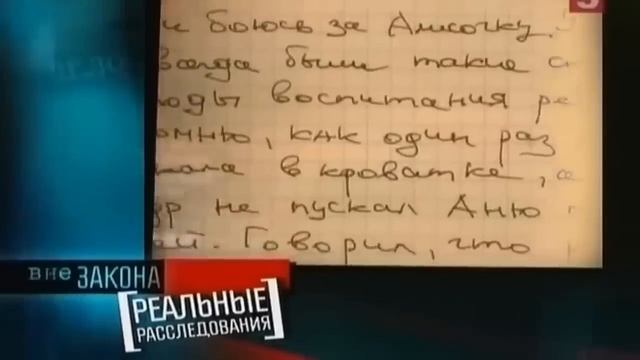 и боюсь за Алисочку.
всегда были такие с
оды воспитания ре
омню, как один раз
кала в кроватке, а
др не пускал Аню
ей. Говорил, что
5
вне ЗАКОНА
[РЕАЛЬНЫЕ
РАССЛЕДОВАНИЯ]